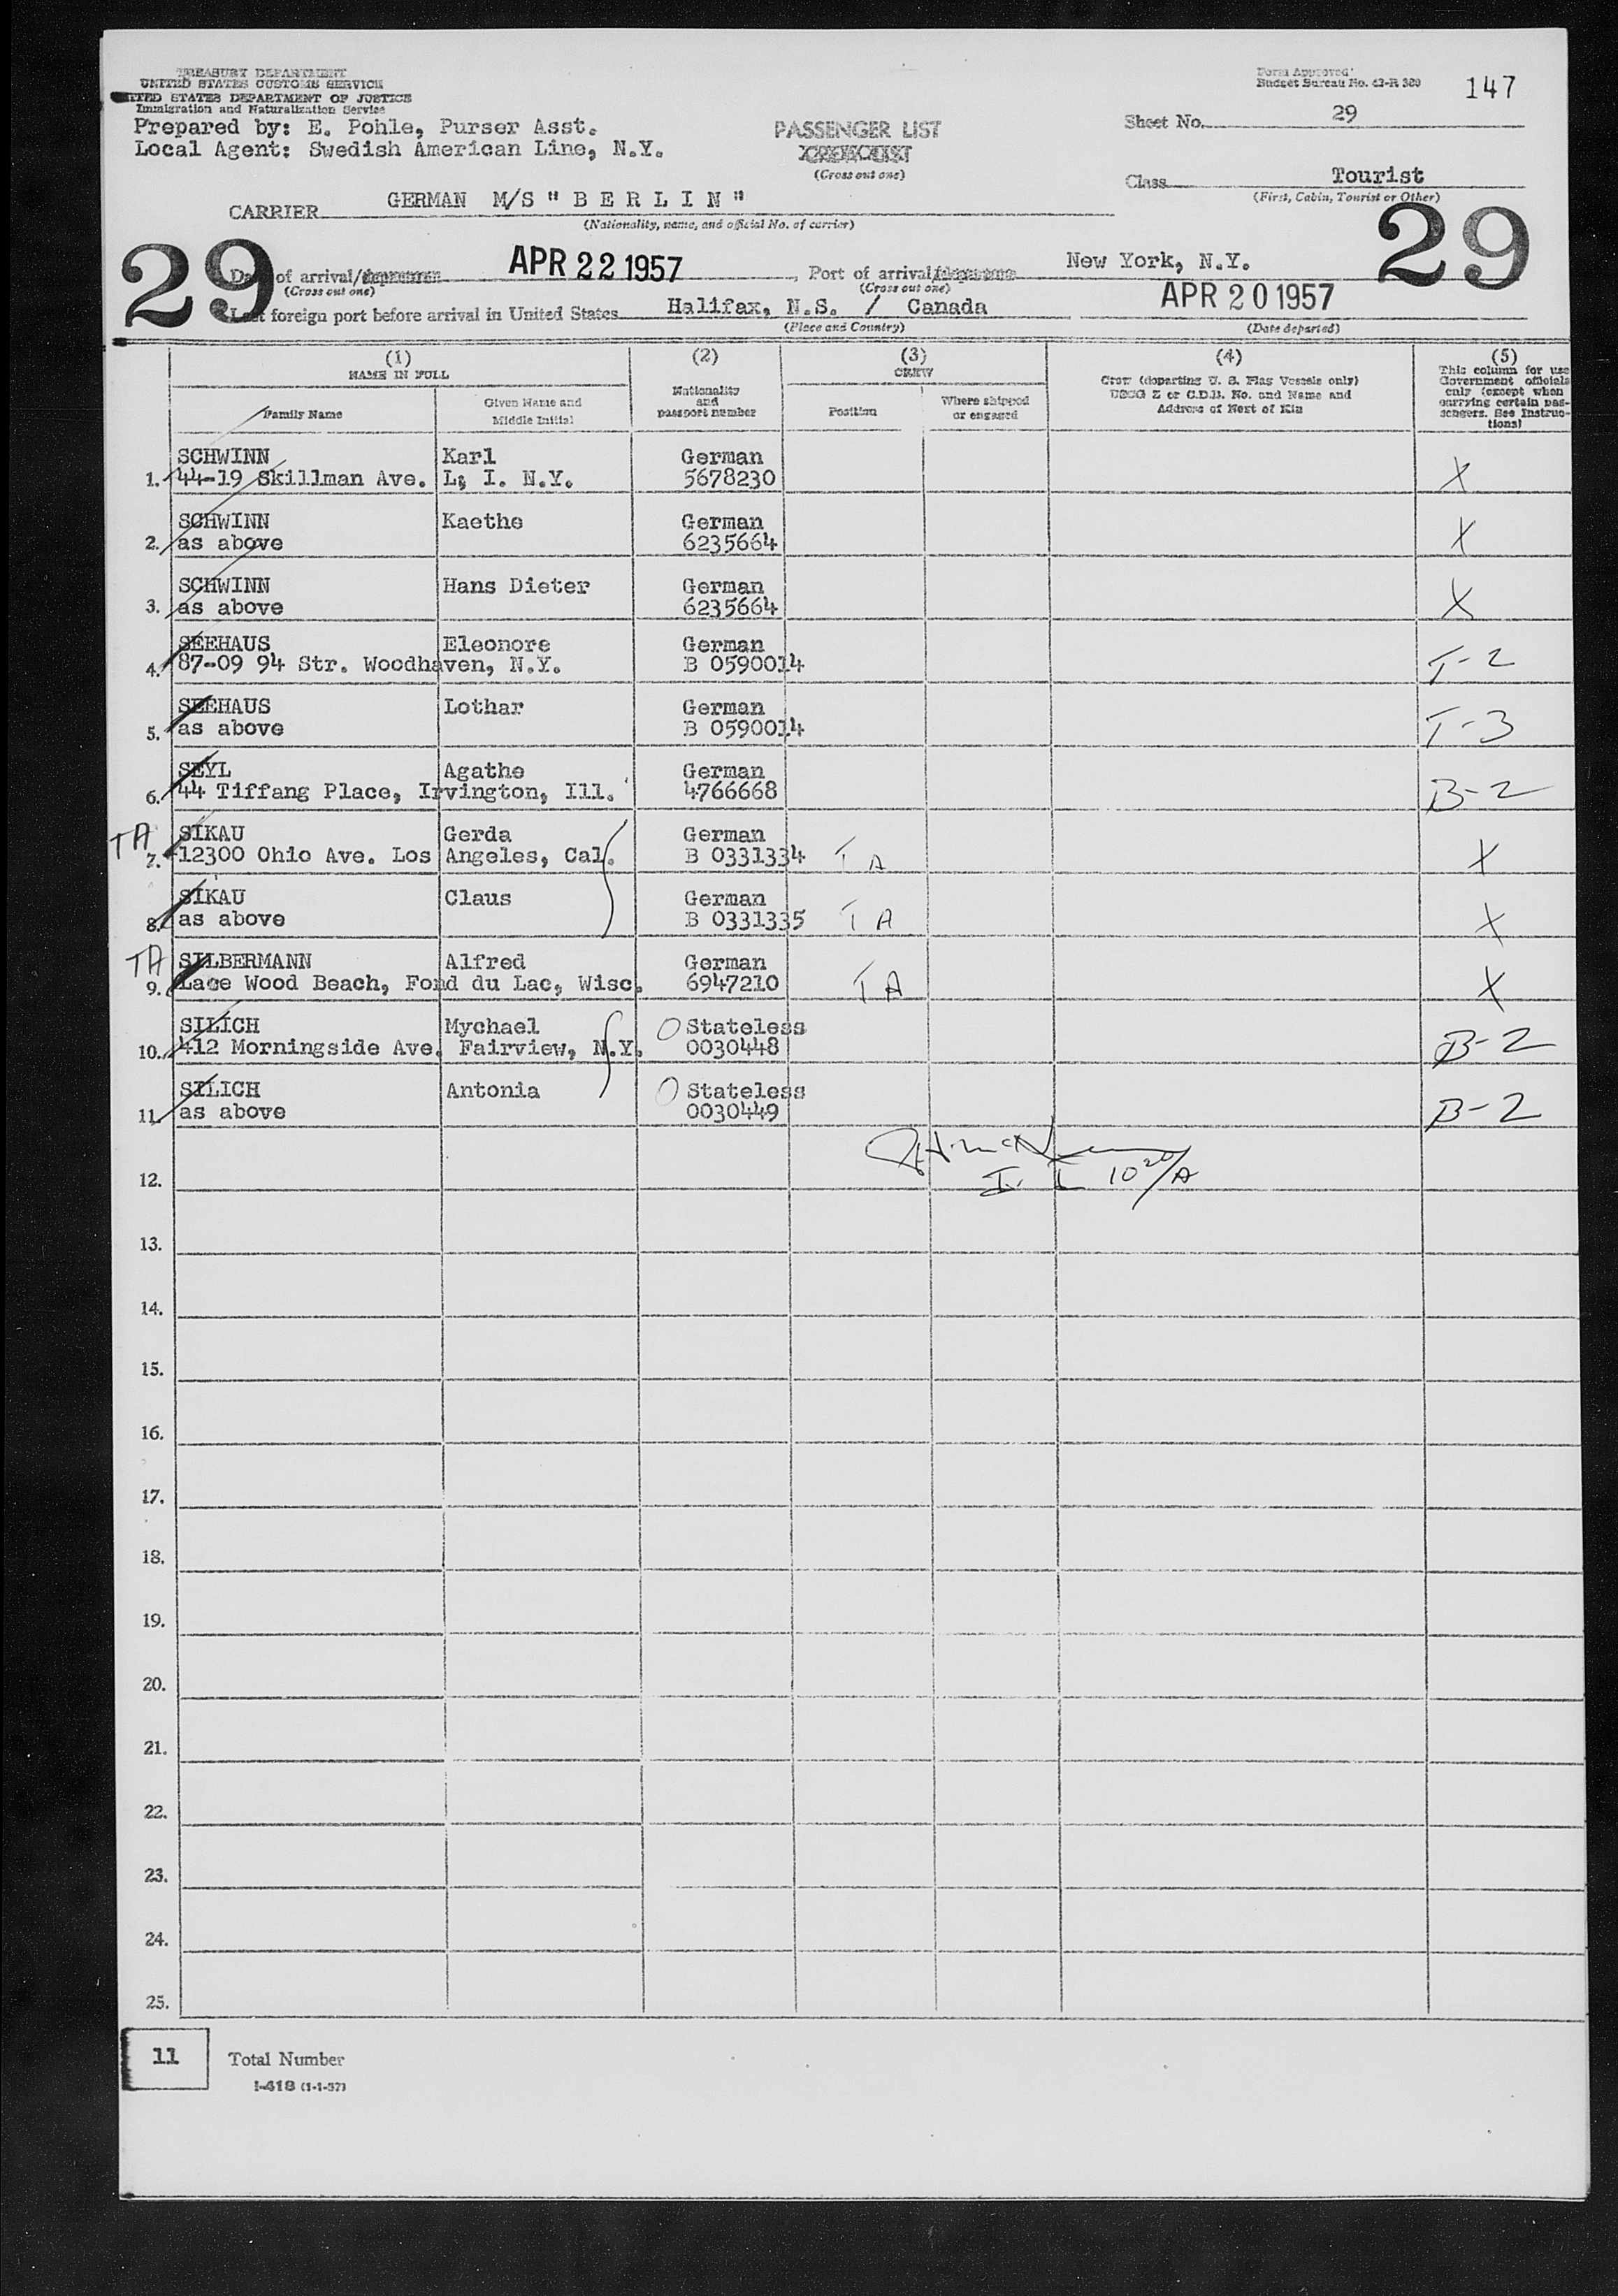 TREASURY DEPARTMENT
UNITED STATES CUSTOMS SERVICE
UNITED STATES DEPARTMENT OF JUSTICE
Immigration and Naturalization Service
Form Approved
Budget Bureau No. 43-R 380
147
Prepared by: E. Pohle, Purser Asst.
Local Agent: Swedish American Line, N.Y.
PASSENGER LIST
(Cross out one)
Sheet No. 29
Class Tourist
(First, Cabin, Tourist or Other)
CARRIER GERMAN M/S " B E R L I N "
(Nationality, name, and official No. of carrier)
29
29
Date of arrival/departure APR 22 1957, Port of arrival/departure New York, N.Y.
(Cross out one) (Cross out one)
Last foreign port before arrival in United States Halifax, N.S. / Canada APR 20 1957
(Place and Country) (Date departed)
(1) (2) (3) (4) (5)
NAME IN FULL
Family Name
Given Name and
Middle Initial
Nationality
and
passport number
CREW
Position
Where shipped
or engaged
Crew (departing U. S. Flag Vessels only)
USCG Z or C.D.B. No. and Name and
Address of Next of Kin
This column for use
Government officials
only (except when
carrying certain pas-
sengers. See Instruc-
tions)
SCHWINN Karl German
1. 44-19 Skillman Ave. L, I. N.Y. 5678230 X
SCHWINN Kaethe German
2. as above 6235664 X
SCHWINN Hans Dieter German
3. as above 6235664 X
SEEHAUS Eleonore German
4. 87-09 94 Str. Woodhaven, N.Y. B 0590014 T-2
SEEHAUS Lothar German
5. as above B 0590014 T-3
SEYL Agathe German
6. 44 Tiffang Place, Irvington, Ill. 4766668 B-2
TA SIKAU Gerda German
7. 12300 Ohio Ave. Los Angeles, Cal. B 0331334 TA X
SIKAU Claus German
8. as above B 0331335 TA X
TA SILBERMANN Alfred German
9. Lace Wood Beach, Fond du Lac, Wisc. 6947210 TA X
SILICH Mychael O Stateless
10. 412 Morningside Ave. Fairview, N.Y. 0030448 B-2
SILICH Antonia O Stateless
11. as above 0030449 B-2
12.
13.
14.
15.
16.
17.
18.
19.
20.
21.
22.
23.
24.
25.
11 Total Number
I-418 (1-1-57)